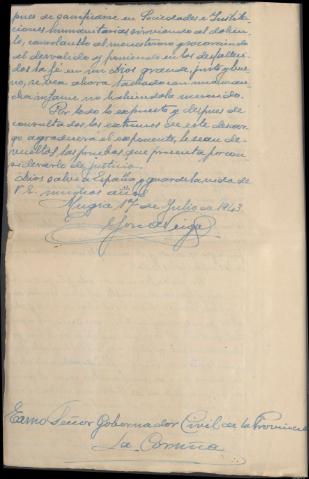 pues de ganifiarme en Sociedades e Institu-
ciones humanitarias sirviendo al dolien-
te, consolando al menesteroso y socorriendo
al desvalido y poniendo en los desfalleci-
dos la fe en un Dios grande, justo y bue-
no, se vean ahora tachado con una man-
cha infame no habiéndola merecido.
Por todo lo expuesto y despues de
consultados los extremos de este descar-
go, agradecerá el exponente, le sean de-
vueltas las pruebas que presenta por con-
siderarlo de justicia.
Dios salve a España y guarde la vida de
V. E. muchos años.
Mugia 17 de Julio de 1943.
Excmo Señor Gobernador Civil de la Provincia
La Coruña